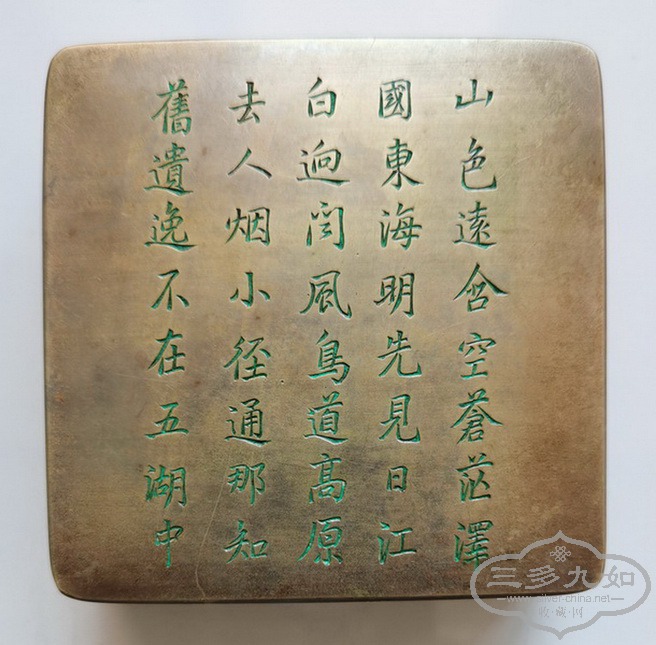 山色遠含空蒼茫澤
國東海明先見日江
白迥闻風鳥道高原
去人烟小徑通那知
舊遺逸不在五湖中
三多九如
www.silver-china.net
收·藏·网